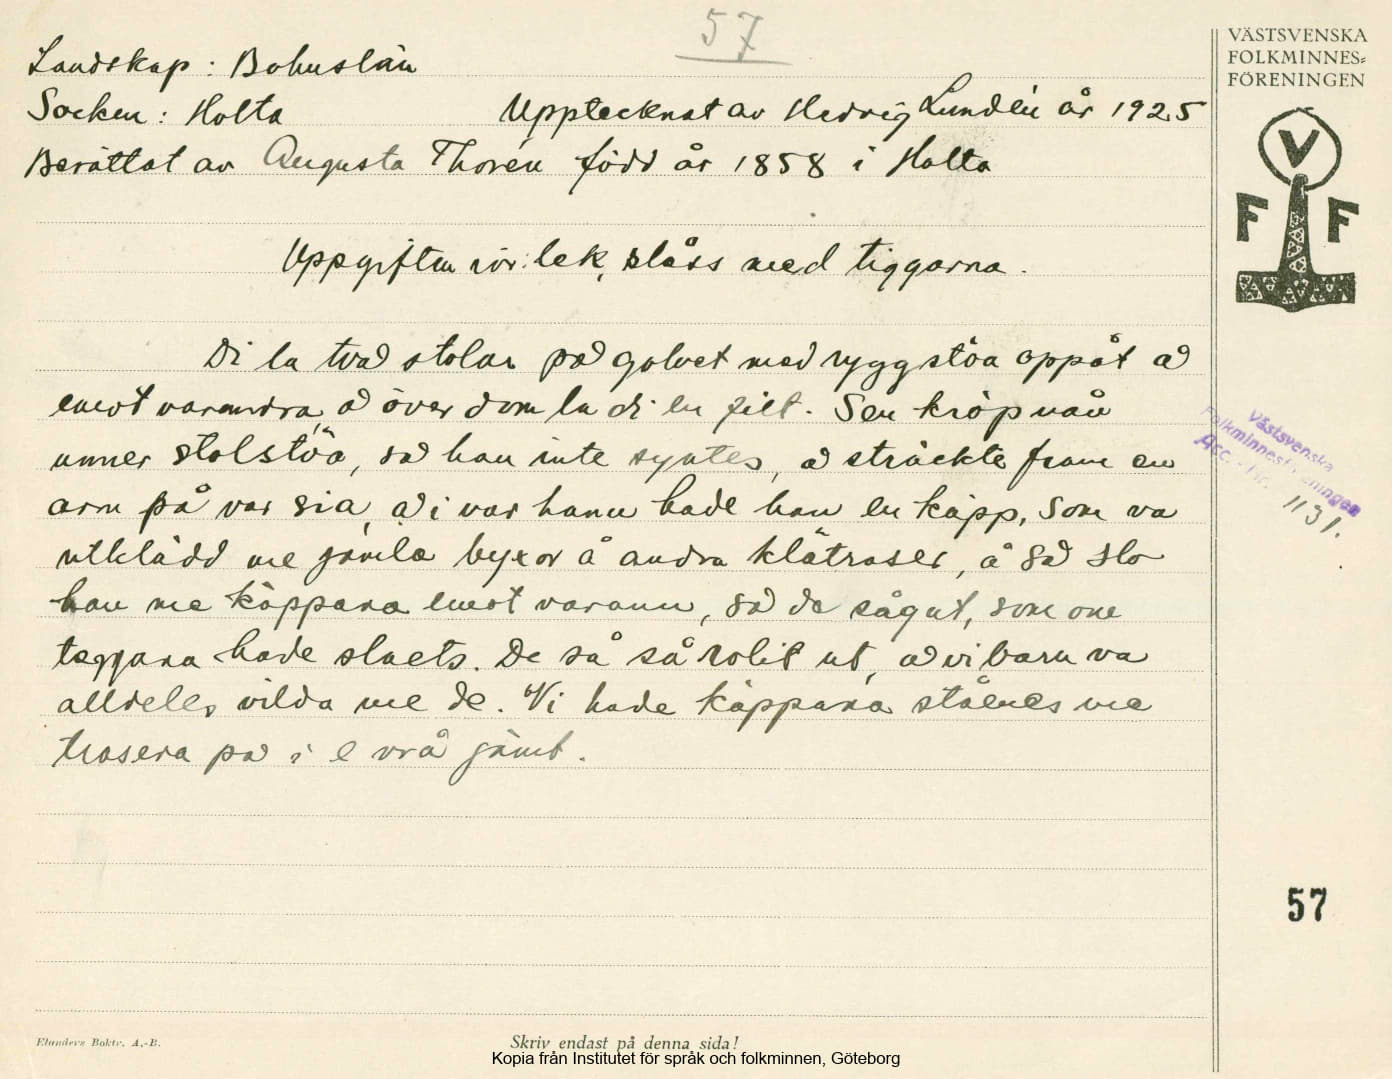 57
VÄSTSVENSKA
FOLKMINNES=
FÖRENINGEN
Landskap: Bohuslän
Socken: Holta Upptecknat av Hedvig Lundén år 1925
Berättat av Augusta Thorén född år 1858 i Holta
V
F F
Uppgiften rör: lek, slåss med tiggarna.
Di la två stolar på golvet med ryggstöa oppåt å
emot varandra, å över dom la di en filt. Sen kröp nån
unner stolstöa, så han inte syntes, å sträckte fram en
arm på var sia, å i var hann hade han en käpp, som va
utklädd me gamla byxor å andra klätraser, å så slo
han me käppara emot varann, så de sågut, som om
teggara hade slaets. De så så rolit ut, å vi barn va
alldeles vilda me de. Vi hade käppara ståenes me
trasera på i e vrå jämt.
Västsvenska
Folkminnesföreningen
Acc. Nr. 1131.
57
Elanders Boktr. A.-B.
Skriv endast på denna sida!
Kopia från Institutet för språk och folkminnen, Göteborg